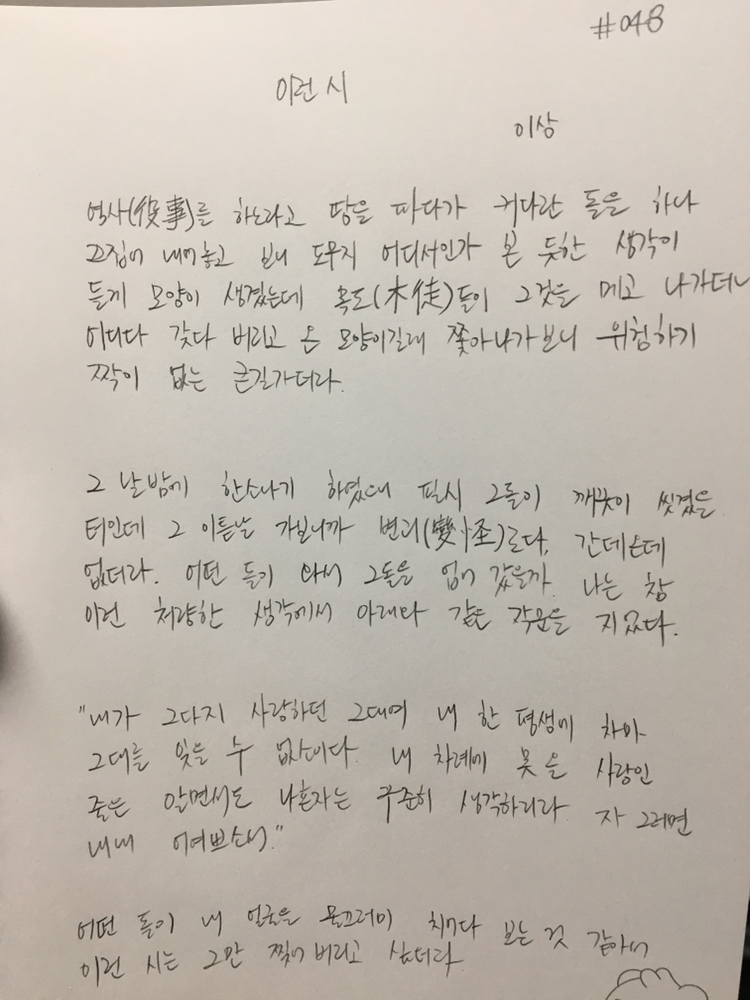 #048
이런 시
이상
역사(役事)를 하노라고 땅을 파다가 커다란 돌을 하나
끄집어 내어놓고 보니 도무지 어디서인가 본 듯한 생각이
들게 모양이 생겼는데 목도(木徒)들이 그것을 메고 나가더니
어디다 갖다 버리고 온 모양이길래 쫓아나가보니 위험하기
짝이 없는 큰길가더라.
그 날밤에 한소나기 하였으니 필시 그돌이 깨끗이 씻겼을
터인데 그 이튿날 가보니까 변괴(變怪)로다. 간데온데
없더라. 어떤 돌이 와서 그돌을 업어 갔을까. 나는 참
이런 처량한 생각에서 아래와 같은 작문을 지었다.
"내가 그다지 사랑하던 그대여 내 한 평생에 차마
그대를 잊을 수 없소이다. 내 차례에 못 올 사랑인
줄은 알면서도 나혼자는 꾸준히 생각하리라. 자 그러면
내내 어여쁘소서."
어떤 돌이 내 얼굴을 물끄러미 치어다 보는 것 같아서
이런 시는 그만 찢어 버리고 싶더라.